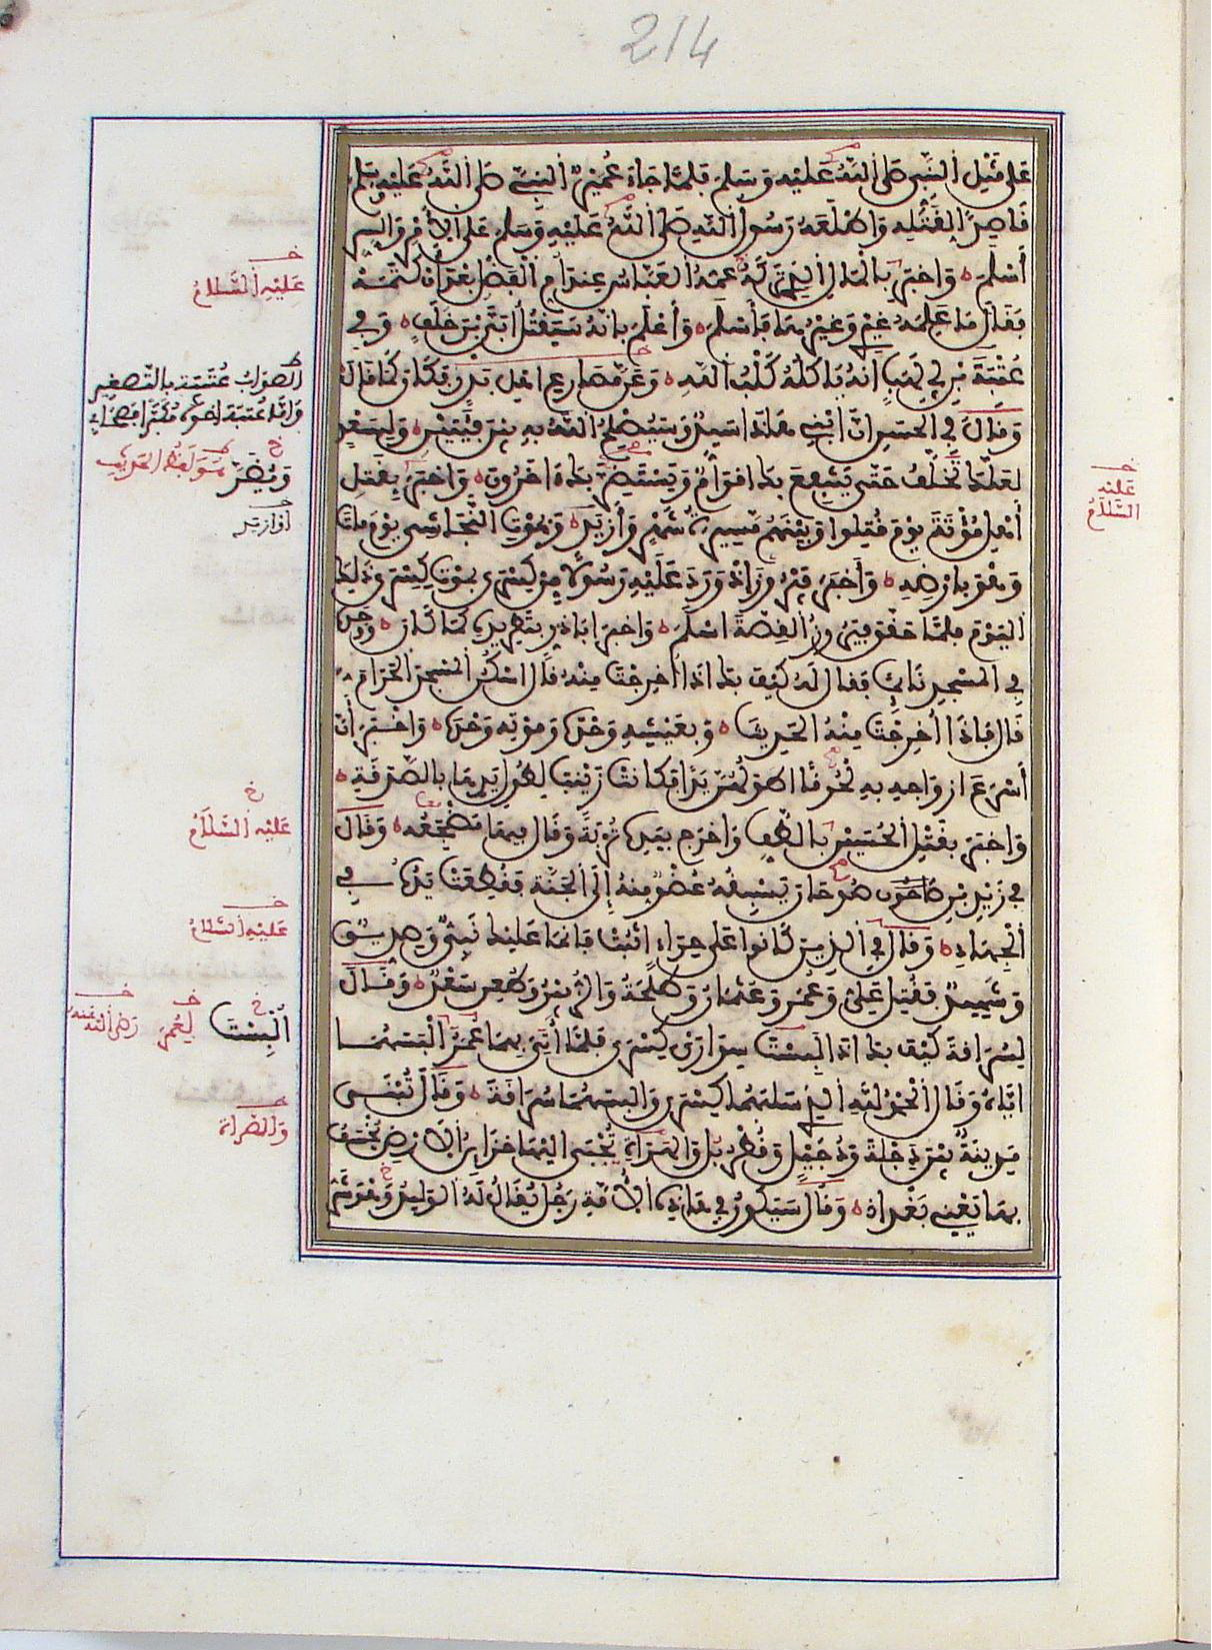 214
على قتل النبي صلى الله عليه وسلم فلما جاء عمير النبي صلى الله عليه وسلم
قاصدا لقتله واطلعه رسول الله صلى الله عليه وسلم على الأمر والسر
أسلم واخبر بالمال الذي تركه عمه العباس عند ام الفضل بعد ان كتمه
فقال ما علمه غيري وغيرها فأسلم وأعلم بانه سيقتل أبي بن خلف وفي
عتبة بن ابي لهب انه ياكله كلب الله وعن مصارع اهل بدر فكان كما قال
وقال في الحسن ان ابني هذا سيد وسيصلح الله به بين فئتين ولسعد
لعلك تخلف حتى ينتفع بك اقوام ويستضر بك اخرون واخبر بقتل
أهل مؤتة يوم قتلوا وبينهم مسيرة شهر وأزيد وبموت النجاشي يوم مات
وهو بارضه وأخبر فيروز اذ ورد عليه رسولا من كسرى بموت كسرى ذلك
اليوم فلما حقق فيروز القصة اسلم واخبر اباذر بتطريده كما كان ووجده
في المسجد نائما فقال له كيف بك اذا اخرجت منه قال اسكن المسجد الحرام
قال فاذا اخرجت منه الحديث وبعيشه وحده وموته وحده واخبر أن
أسرع ازواجه به لحوقا اطولهن يدا فكانت زينب لطول يدها بالصدقة
واخبر بقتل الحسين بالطف واخرج بيده تربة وقال فيها مضجعه وقال
في زيد بن صوحان يسبقه عضو منه إلى الجنة فقطعت يده في
الجهاد وقال في الذين كانوا على حراء اثبت فانما عليك نبي وصديق
وشهيد فقتل علي وعمر وعثمان وطلحة والزبير وطعن سعد وقال
لسراقة كيف بك اذا البست سواري كسرى فلما أتي بهما عمر البسهما
اياه وقال الحمد لله الذي سلبهما كسرى والبسهما سراقة وقال تبنى
مدينة بين دجلة ودجيل وقطربل والصراة تجبى اليها خزائن الارض يخسف
بها يعني بغداد وقال سيكون في هذه الأمة رجل يقال له الوليد وهو شر
عليه السلام
الصواب عتيبة بالتصغير
عليه السلام
عليه السلام
عليه السلام
البست
لعمر
رضي الله عنه
والصراة